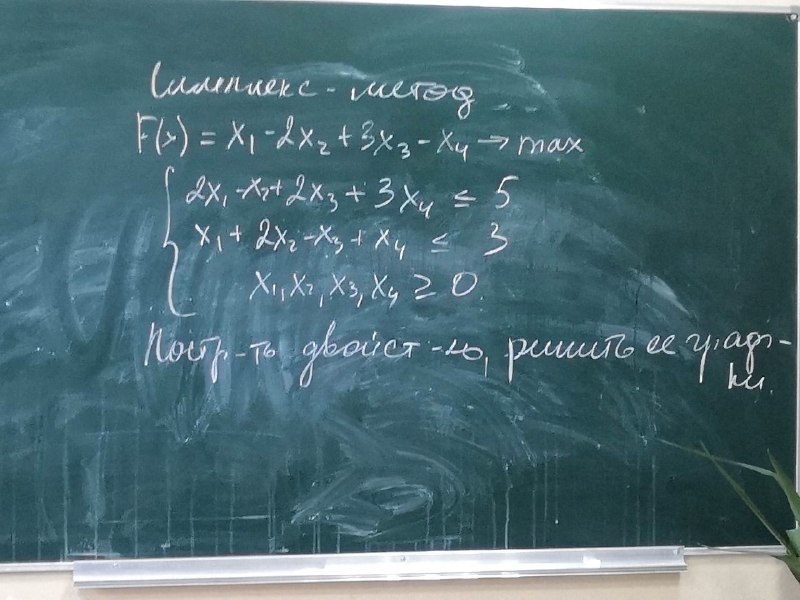 Симплекс-метод
F(x) = x₁ - 2x₂ + 3x₃ - x₄ → max
2x₁ - x₂ + 2x₃ + 3x₄ ≤ 5
x₁ + 2x₂ - x₃ + x₄ ≤ 3
x₁, x₂, x₃, x₄ ≥ 0
Постр-ть двойст-ю, решить ее графи-
ки.